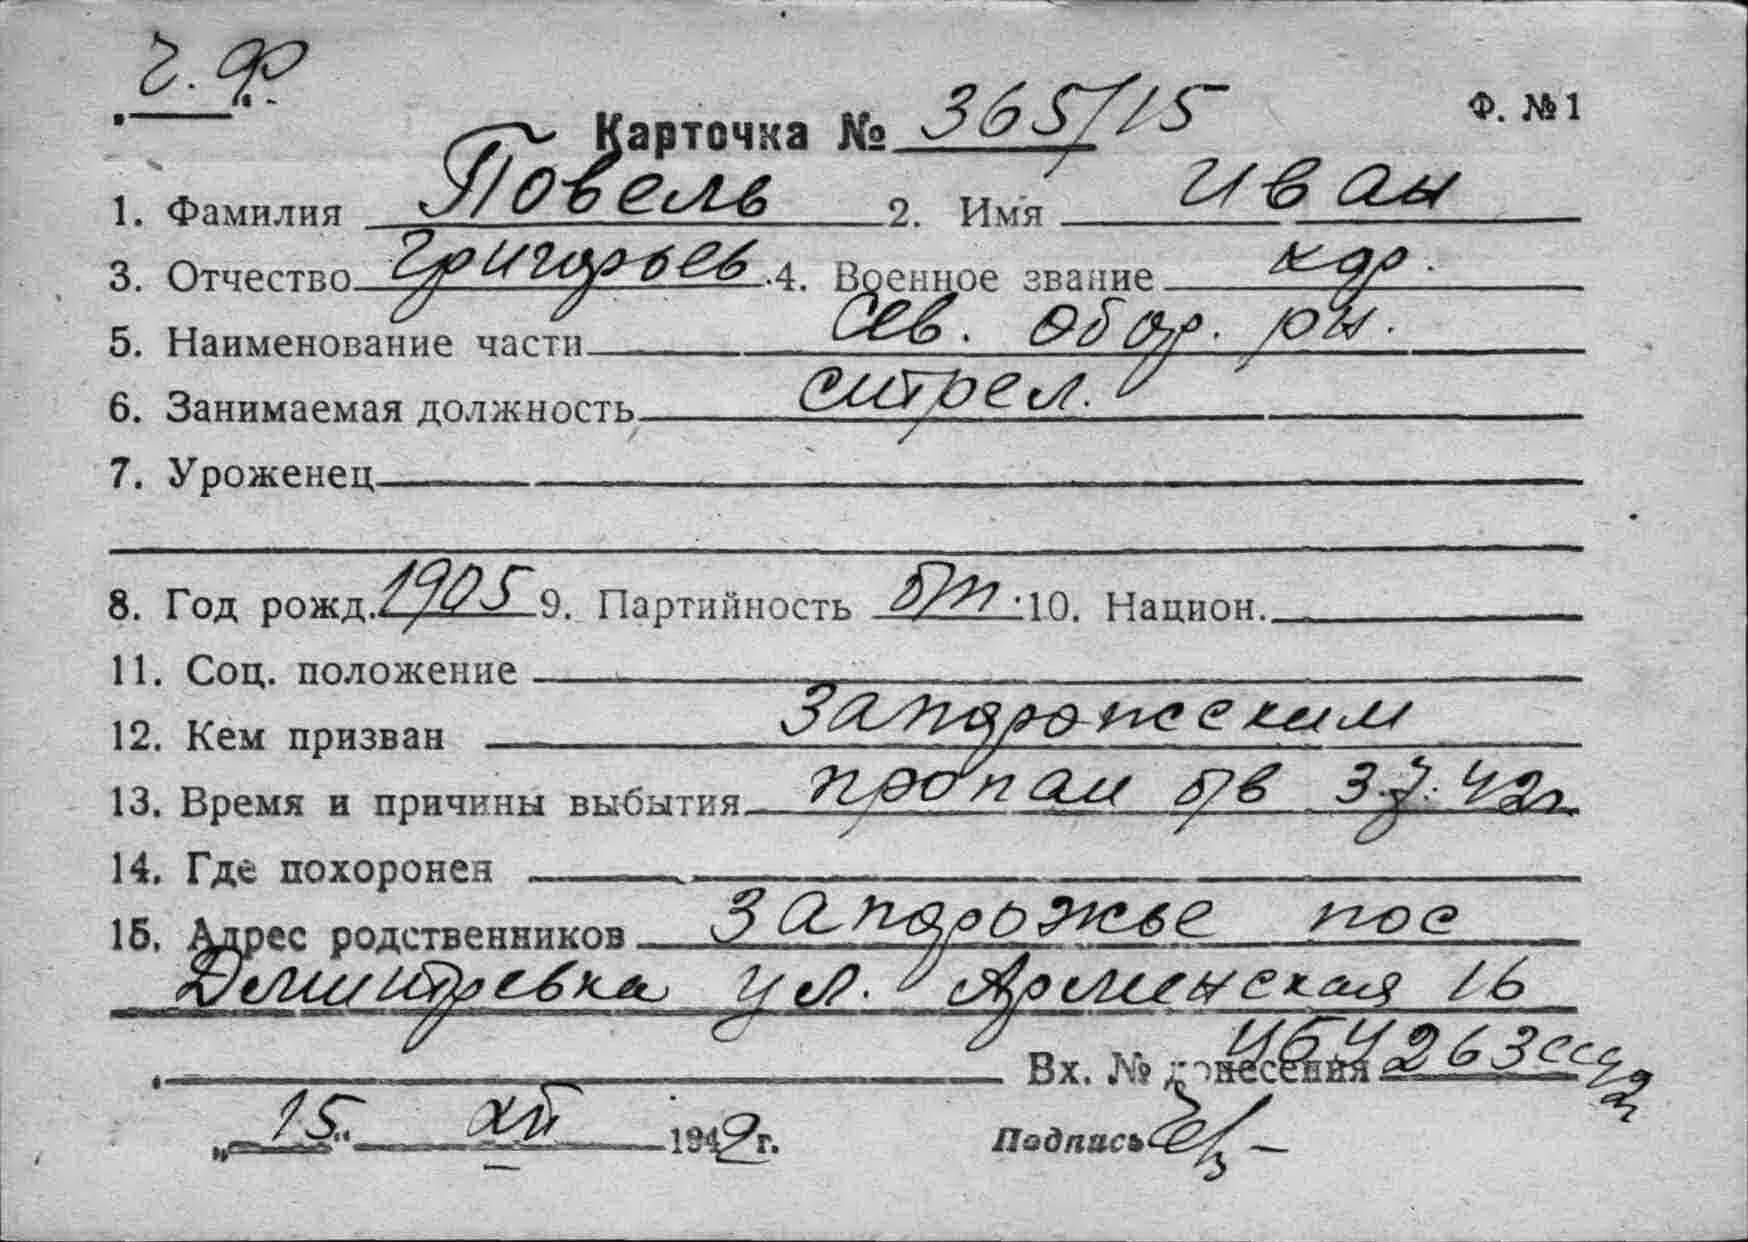 Ч. Ф.
Ф. №1
Карточка № 365/15
1. Фамилия Повель 2. Имя Иван
3. Отчество Григорьев 4. Военное звание кдр.
5. Наименование части Сев. Обор. рн.
6. Занимаемая должность стрел.
7. Уроженец
8. Год рожд. 1905 9. Партийность б/п 10. Национ.
11. Соц. положение
12. Кем призван Запорожским
13. Время и причины выбытия пропал б/в 3.7.42г
14. Где похоронен
15. Адрес родственников Запорожье пос
Дмитревка ул. Арменская 16
Вх. № донесения 263сс
"15" XII 1942 г. Подпись